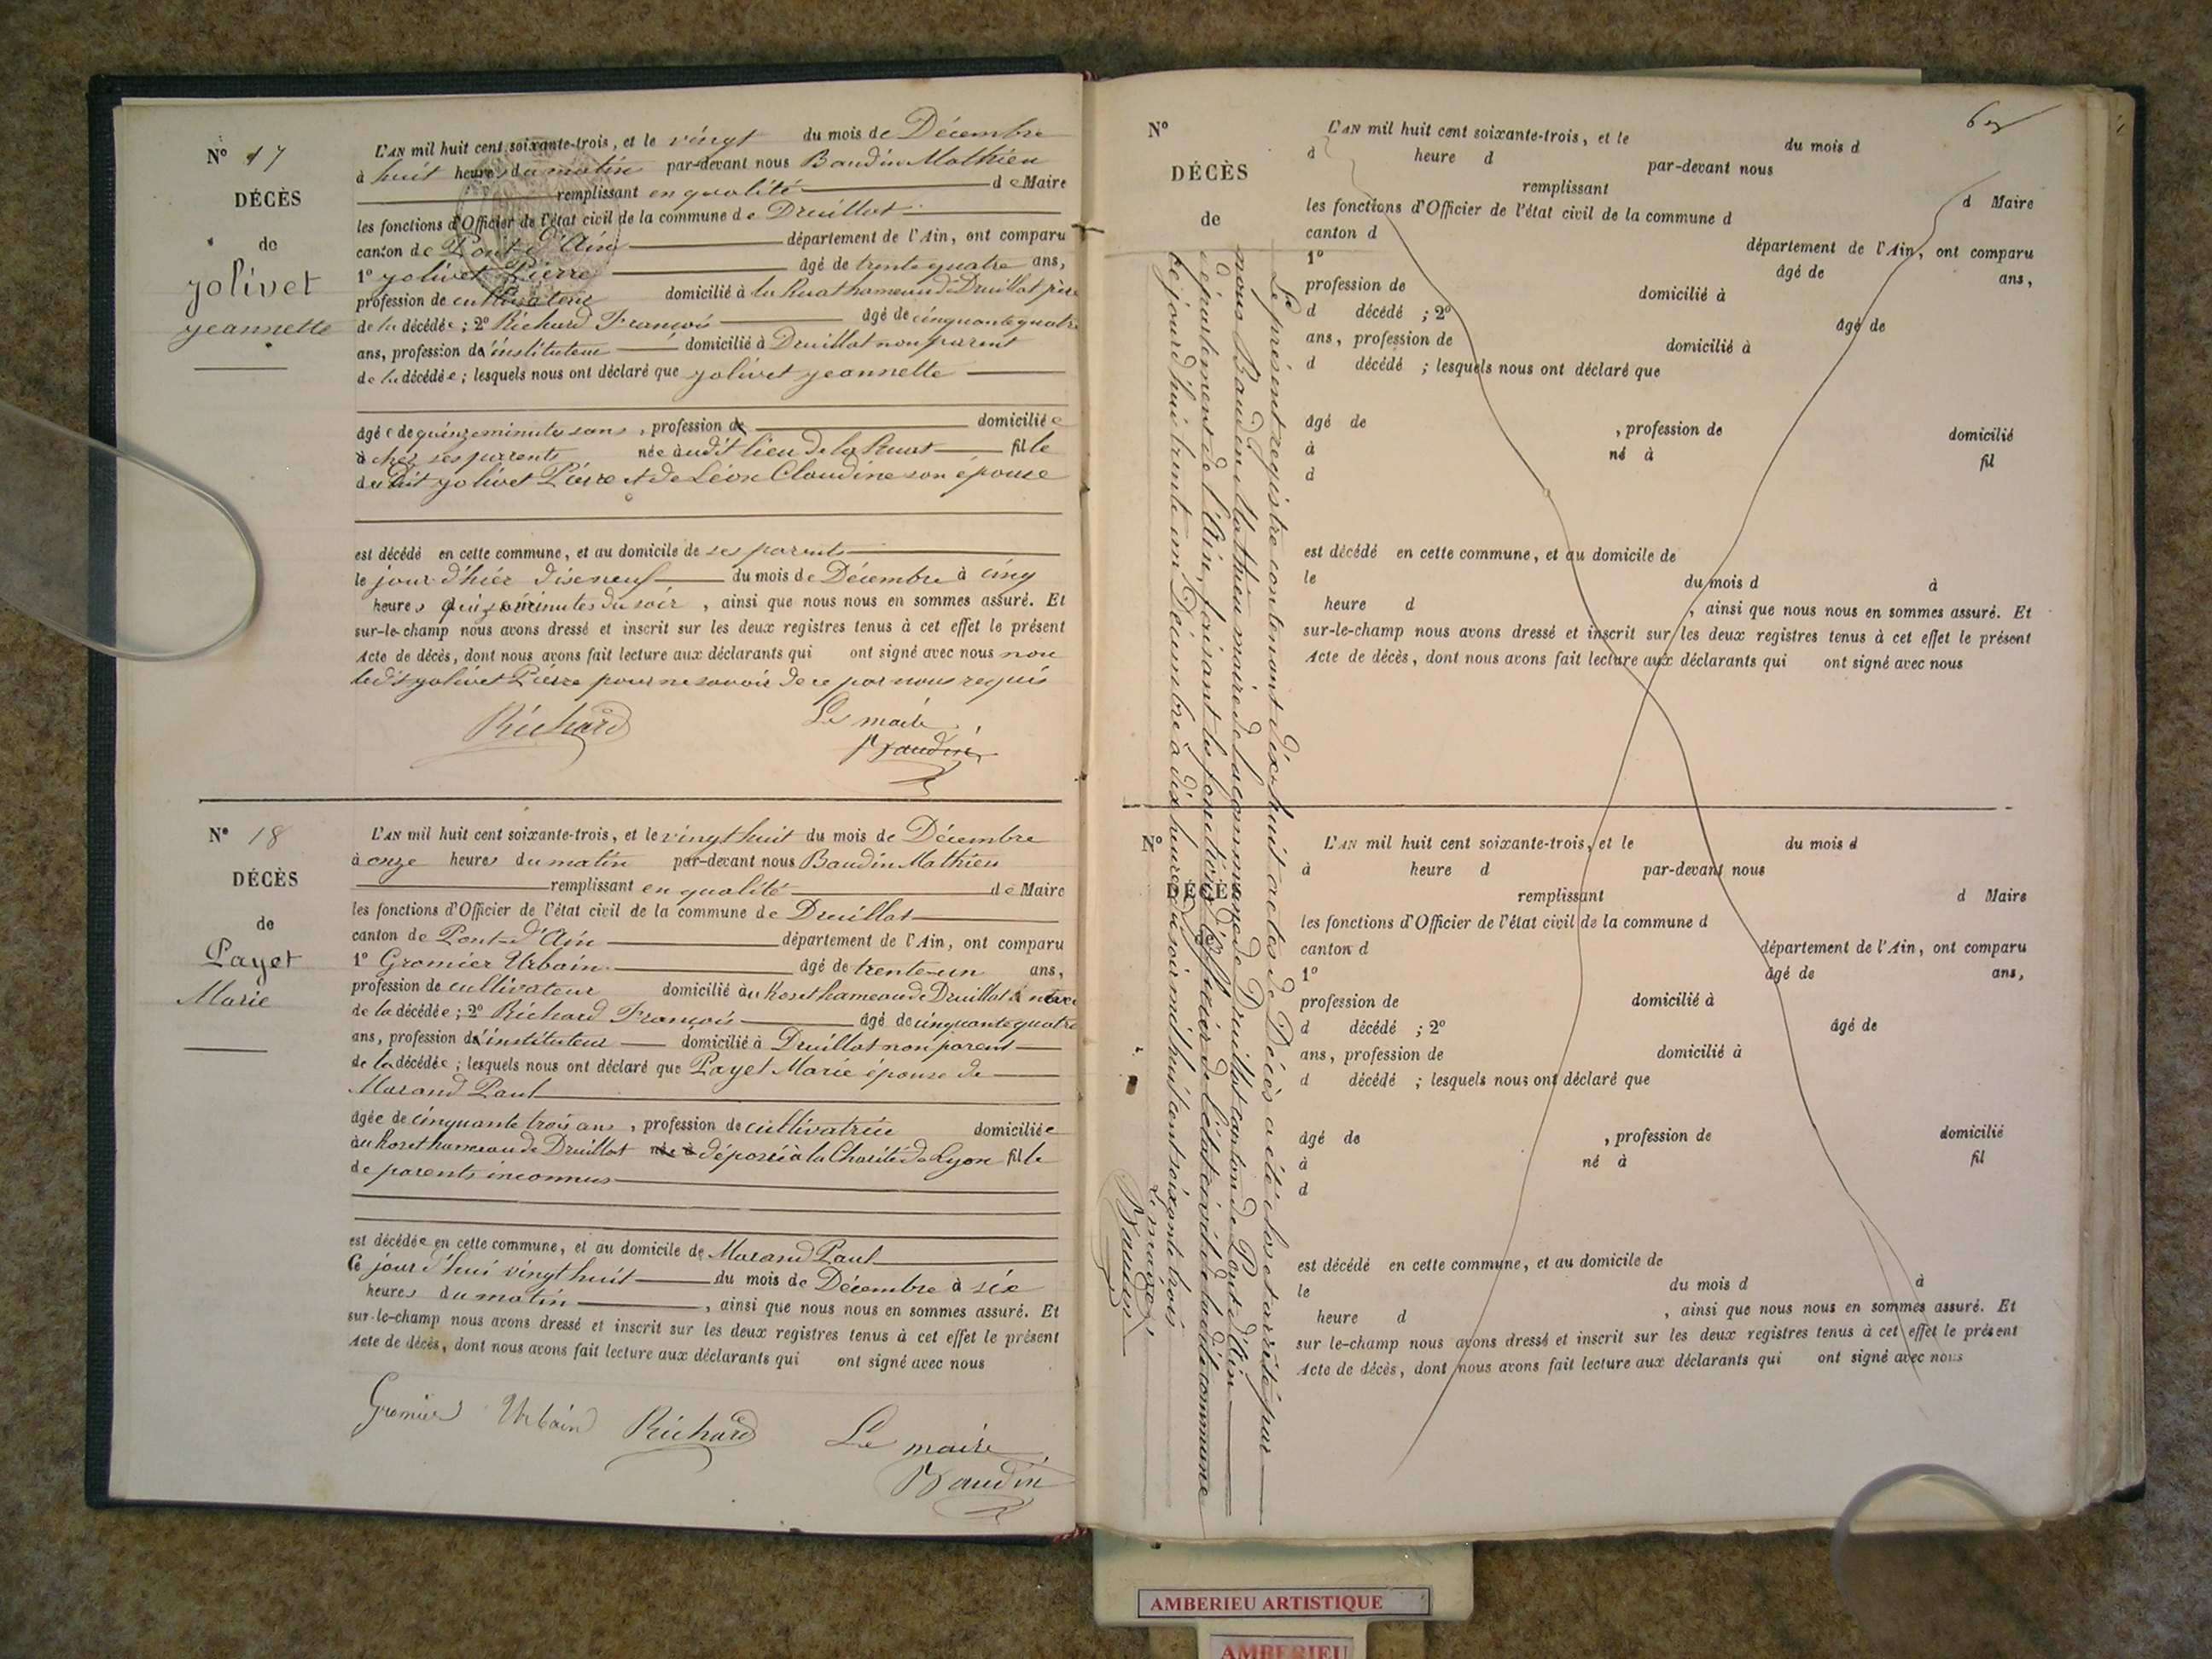 N° 17
DÉCÈS
de
Jolivet
Jeannette
L'AN mil huit cent soixante-trois, et le vingt du mois de Décembre
à huit heures du matin par-devant nous Baudin Mathieu
remplissant en qualité de Maire
les fonctions d'Officier de l'état civil de la commune de Druillat
canton de Pont d'Ain département de l'Ain, ont comparu
1° Jolivet Pierre âgé de trente quatre ans,
profession de cultivateur domicilié à la Ruat hameau de Druillat père
de la décédée ; 2° Richard François âgé de cinquante quatre
ans, profession d'instituteur domicilié à Druillat non parent
de la décédée ; lesquels nous ont déclaré que Jolivet Jeannette
âgée de quinze minutes ans, profession de domiciliée
à chez ses parents née audit lieu de la Ruat fille
dudit Jolivet Pierre et de Léon Claudine son épouse
est décédé en cette commune, et au domicile de ses parents
le jour d'hier dixneuf du mois de Décembre à cinq
heures quinze minutes du soir, ainsi que nous nous en sommes assuré. Et
sur-le-champ nous avons dressé et inscrit sur les deux registres tenus à cet effet le présent
Acte de décès, dont nous avons fait lecture aux déclarants qui ont signé avec nous non
ledit Jolivet Pierre pour ne savoir de ce par nous requis
Richard Le maire
Baudin
N° 18
DÉCÈS
de
Payet
Marie
L'AN mil huit cent soixante-trois, et le vingt huit du mois de Décembre
à onze heures du matin par-devant nous Baudin Mathieu
remplissant en qualité de Maire
les fonctions d'Officier de l'état civil de la commune de Druillat
canton de Pont-d'Ain département de l'Ain, ont comparu
1° Gromier Urbain âgé de trente-un ans,
profession de cultivateur domicilié au Roset hameau de Druillat
de la décédée ; 2° Richard François âgé de cinquante quatre
ans, profession d'instituteur domicilié à Druillat non parent
de la décédée ; lesquels nous ont déclaré que Payet Marie épouse de
Marand Paul
âgée de cinquante trois ans, profession de cultivatrice domiciliée
au Roset hameau de Druillat née à déposée à la Charité de Lyon fille
de parents inconnus
est décédée en cette commune, et au domicile de Marand Paul
Ce jour d'hui vingt huit du mois de Décembre à six
heures du matin, ainsi que nous nous en sommes assuré. Et
sur-le-champ nous avons dressé et inscrit sur les deux registres tenus à cet effet le présent
Acte de décès, dont nous avons fait lecture aux déclarants qui ont signé avec nous
Gromier Urbain Richard Le maire
Baudin
N°
DÉCÈS
de
L'AN mil huit cent soixante-trois, et le du mois d
à heure d par-devant nous
remplissant d Maire
les fonctions d'Officier de l'état civil de la commune d
canton d département de l'Ain, ont comparu
1° âgé de ans,
profession de domicilié à
d décédé ; 2° âgé de
ans, profession de domicilié à
d décédé ; lesquels nous ont déclaré que
âgé de , profession de domicilié
à né à fil
d
est décédé en cette commune, et au domicile de
le du mois d à
heure d , ainsi que nous nous en sommes assuré. Et
sur-le-champ nous avons dressé et inscrit sur les deux registres tenus à cet effet le présent
Acte de décès, dont nous avons fait lecture aux déclarants qui ont signé avec nous
Le présent registre contenant dix-huit actes de Décès a été clos et arrêté par
nous Baudin Mathieu maire de la commune de Druillat canton de Pont-d'Ain
département de l'Ain, faisant les fonctions d'Officier de l'état civil de ladite commune
ce jourd'hui trente un Décembre à dix heures du soir mil huit cent soixante trois
Le maire
Baudin
N°
DÉCÈ
L'AN mil huit cent soixante-trois, et le du mois d
à heure d par-devant nous
remplissant d Maire
les fonctions d'Officier de l'état civil de la commune d
canton d département de l'Ain, ont comparu
1° âgé de ans,
profession de domicilié à
d décédé ; 2° âgé de
ans, profession de domicilié à
d décédé ; lesquels nous ont déclaré que
âgé de , profession de domicilié
à né à fil
d
est décédé en cette commune, et au domicile de
le du mois d à
heure d , ainsi que nous nous en sommes assuré. Et
sur le-champ nous avons dressé et inscrit sur les deux registres tenus à cet effet le présent
Acte de décès, dont nous avons fait lecture aux déclarants qui ont signé avec nous
AMBERIEU ARTISTIQUE
AMBERIEU